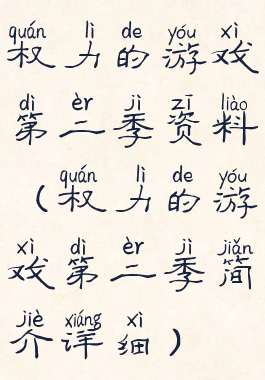 quán lì de yóu xì
权力的游戏
dì èr jì zī liào
第二季资料
quán lì de yóu
(权力的游
xì dì èr jì jiǎn
戏第二季简
jiè xiáng xì
介详细)